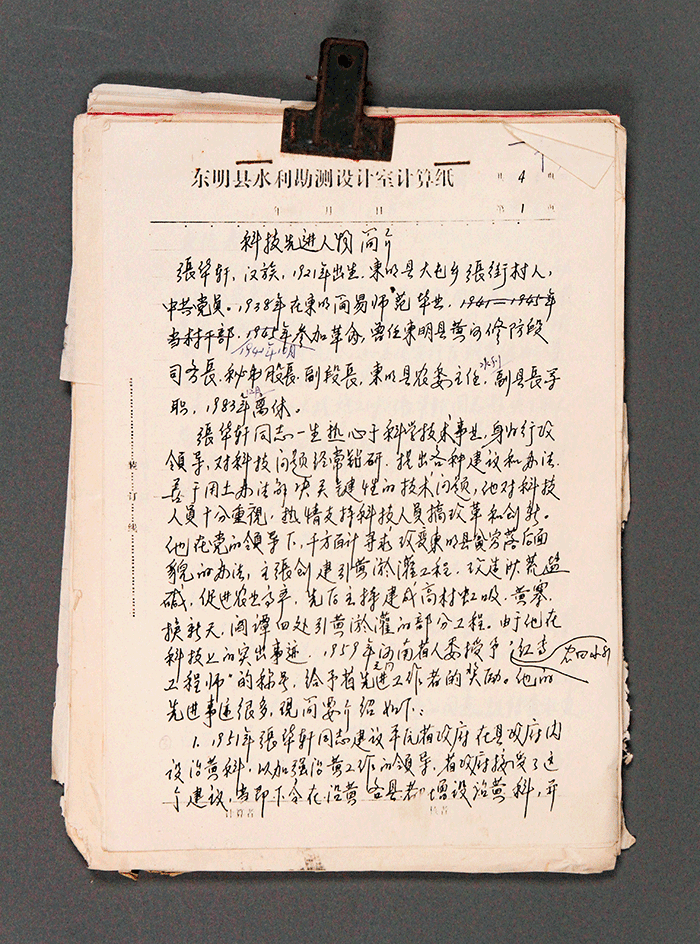 东明县水利勘测设计室计算纸
共 4 页
年 月 日
第 1 页
科技先进人物简介
張华轩，汉族，1921年出生，東明县大屯乡張街村人，
中共党员。1938年在東明简易师范毕业，1941—1945年
当村干部，1945年参加革命，曾任東明县黄河修防段
1944年10月
司务長、秘书股長、副段長，東明县农委主任，水利副县長等
职，1983年12月离休。
張华轩同志一生热心于科学技术事业，身为行政
领导，对科技问题经常钻研，提出各种建议和办法，
善于用土办法解决关键性的技术问题，他对科技
人員十分重視，热情支持科技人員搞改革和创新。
他在党的领导下，千方百计寻求改变東明县贫穷落后面
貌的办法，主張创建引黄淤灌工程，改造沙荒盐
碱，促进农业高产，先后主持建成高村虹吸、黄寨、
换新天、阎潭四处引黄淤灌的部分工程。由于他在
科技上的突出事迹，1959年河南省人委授予"红专
农田水利
工程师"的称号，给予省先进工作者的奖励。他的
先进事迹很多，现简要介绍如下：
1. 1951年張华轩同志建议平原省政府在县政府内
设治黄科，以加强治黄工作的领导，省政府接受了这
个建议，当即下令在沿黄各县都增设治黄科，并
计算者
校者
装订线